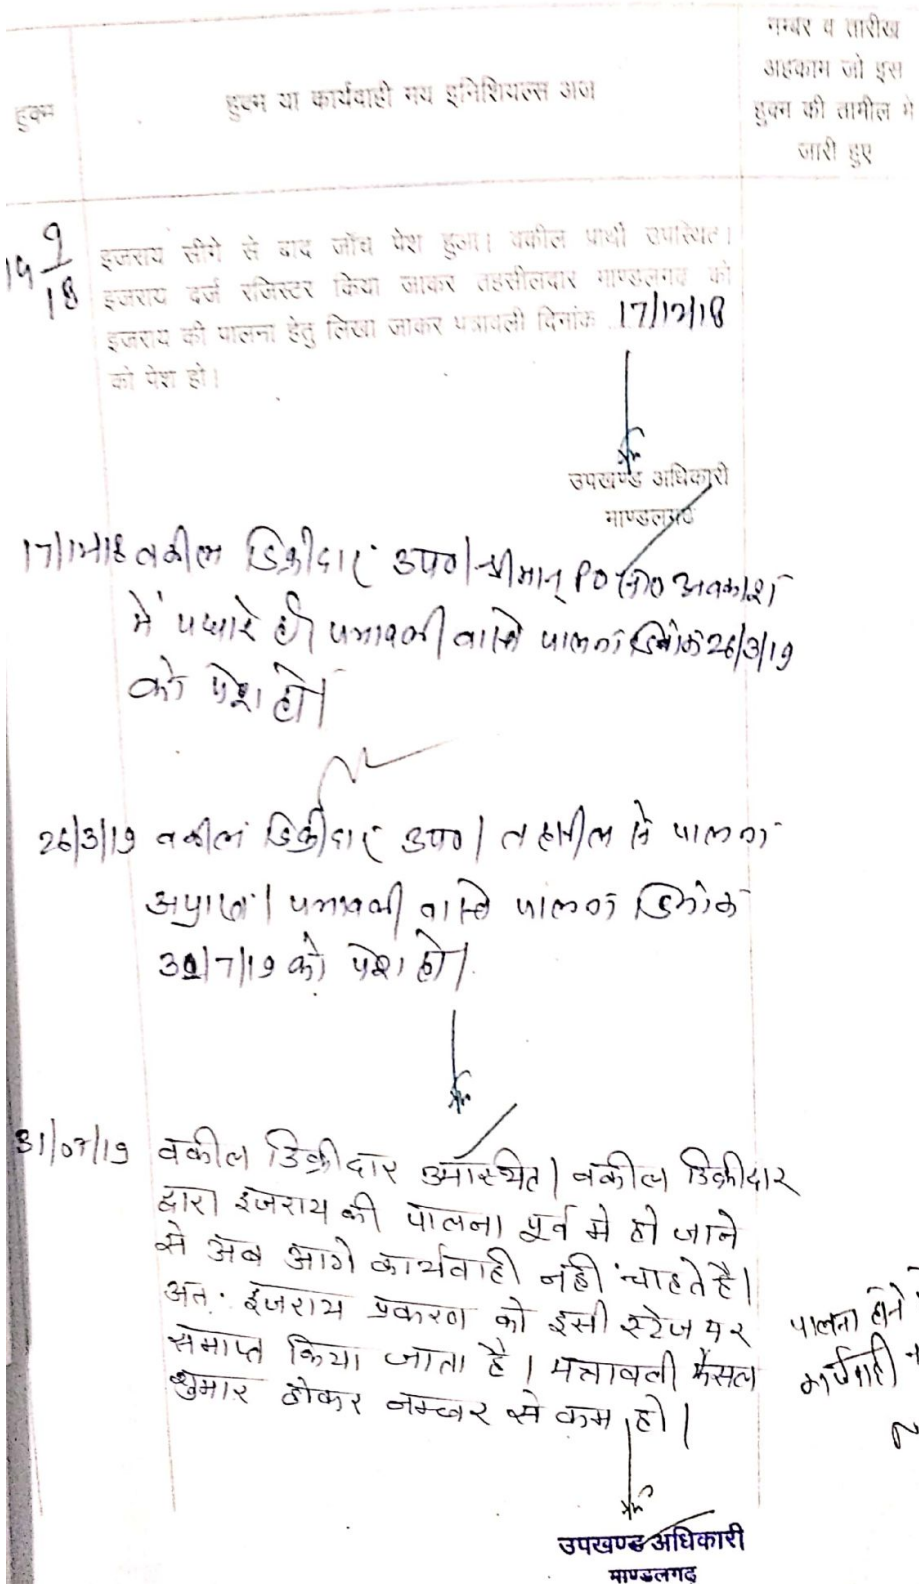 नम्बर व तारीख
अहकाम जो इस
हुक्म की तामील मे
जारी हुए
हुक्म
हुक्म या कार्यवाही मय इनिशियल्स अज
9
18
इजराय सीगे से बाद जाँच पेश हुआ। वकील पार्थी उपस्थित।
इजराय दर्ज रजिस्टर किया जाकर तहसीलदार माण्डलगढ को
इजराय की पालना हेतु लिखा जाकर पत्रावली दिनांक 17/12/18
को पेश हो।
उपखण्ड अधिकारी
माण्डलगढ
17/12/18 वकील डिक्रीदार उप0। श्रीमान् PO अवकाश
में पधारे है। पत्रावली वास्ते पालना दिनांक 26/3/19
को पेश हो।
26/3/19 वकील डिक्रीदार उप0। तहसील से पालना
अप्राप्त। पत्रावली वास्ते पालना दिनांक
/7/19 को पेश हो।
31/07/19 वकील डिक्रीदार उपस्थित। वकील डिक्रीदार
द्वारा इजराय की पालना पूर्व मे हो जाने
से अब आगे कार्यवाही नही चाहते है।
अतः इजराय प्रकरण को इसी स्टेज पर
समाप्त किया जाता है। पत्रावली फैसल
शुमार होकर नम्बर से कम हो।
पालना होने
कार्यवाही
उपखण्ड अधिकारी
माण्डलगढ